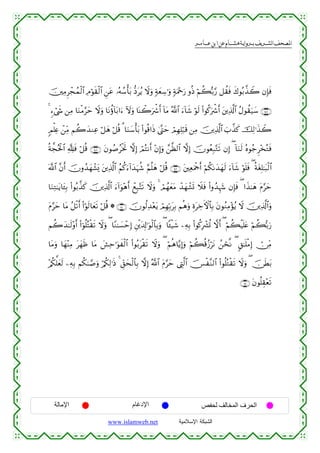 المصحف الشريف برواية هشام عن ابن عامر
فَإِن كَذَّبُوكَ فَقُل رَّبُّكُمْ ذُو رَحْمَةٍ وَٰسِعَةٍ وَلَا يُرَدُّ بَأْسُهُۥ عَنِ ٱلْقَوْمِ ٱلْمُجْرِمِينَ
سَيَقُولُ ٱلَّذِينَ أَشْرَكُوا۟ لَوْ شَآءَ ٱللَّهُ مَآ أَشْرَكْنَا وَلَآ ءَابَآؤُنَا وَلَا حَرَّمْنَا مِن شَىْءٍ ۚ
كَذَٰلِكَ كَذَّبَ ٱلَّذِينَ مِن قَبْلِهِمْ حَتَّىٰ ذَاقُوا۟ بَأْسَنَا ۗ قُلْ هَلْ عِندَكُم مِّنْ عِلْمٍ
فَتُخْرِجُوهُ لَنَآ ۖ إِن تَتَّبِعُونَ إِلَّا ٱلظَّنَّ وَإِنْ أَنتُمْ إِلَّا تَخْرُصُونَ قُلْ فَلِلَّهِ ٱلْحُجَّةُ
ٱلْبَٰلِغَةُ ۖ فَلَوْ شَآءَ لَهَدَىٰكُمْ أَجْمَعِينَ قُلْ هَلُمَّ شُهَدَآءَكُمُ ٱلَّذِينَ يَشْهَدُونَ أَنَّ ٱللَّهَ
حَرَّمَ هَٰذَا ۖ فَإِن شَهِدُوا۟ فَلَا تَشْهَدْ مَعَهُمْ ۚ وَلَا تَتَّبِعْ أَهْوَآءَ ٱلَّذِينَ كَذَّبُوا۟ بِـَٔايَٰتِنَا
وَٱلَّذِينَ لَا يُؤْمِنُونَ بِٱلْـَٔاخِرَةِ وَهُم بِرَبِّهِمْ يَعْدِلُونَ * قُلْ تَعَالَوْا۟ أَتْلُ مَا حَرَّمَ
رَبُّكُمْ عَلَيْكُمْ ۖ أَلَّا تُشْرِكُوا۟ بِهِۦ شَيْـًٔا ۖ وَبِٱلْوَٰلِدَيْنِ إِحْسَٰنًا ۖ وَلَا تَقْتُلُوٓا۟ أَوْلَٰدَكُم
مِّنْ إِمْلَٰقٍ ۖ نَّحْنُ نَرْزُقُكُمْ وَإِيَّاهُمْ ۖ وَلَا تَقْرَبُوا۟ ٱلْفَوَٰحِشَ مَا ظَهَرَ مِنْهَا وَمَا
بَطَنَ ۖ وَلَا تَقْتُلُوا۟ ٱلنَّفْسَ ٱلَّتِى حَرَّمَ ٱللَّهُ إِلَّا بِٱلْحَقِّ ۚ ذَٰلِكُمْ وَصَّىٰكُم بِهِۦ لَعَلَّكُمْ
تَعْقِلُونَ
الحرف المخالف لحفص الإدغام الإمالة
الشبكة الإسلامية www.islamweb.net